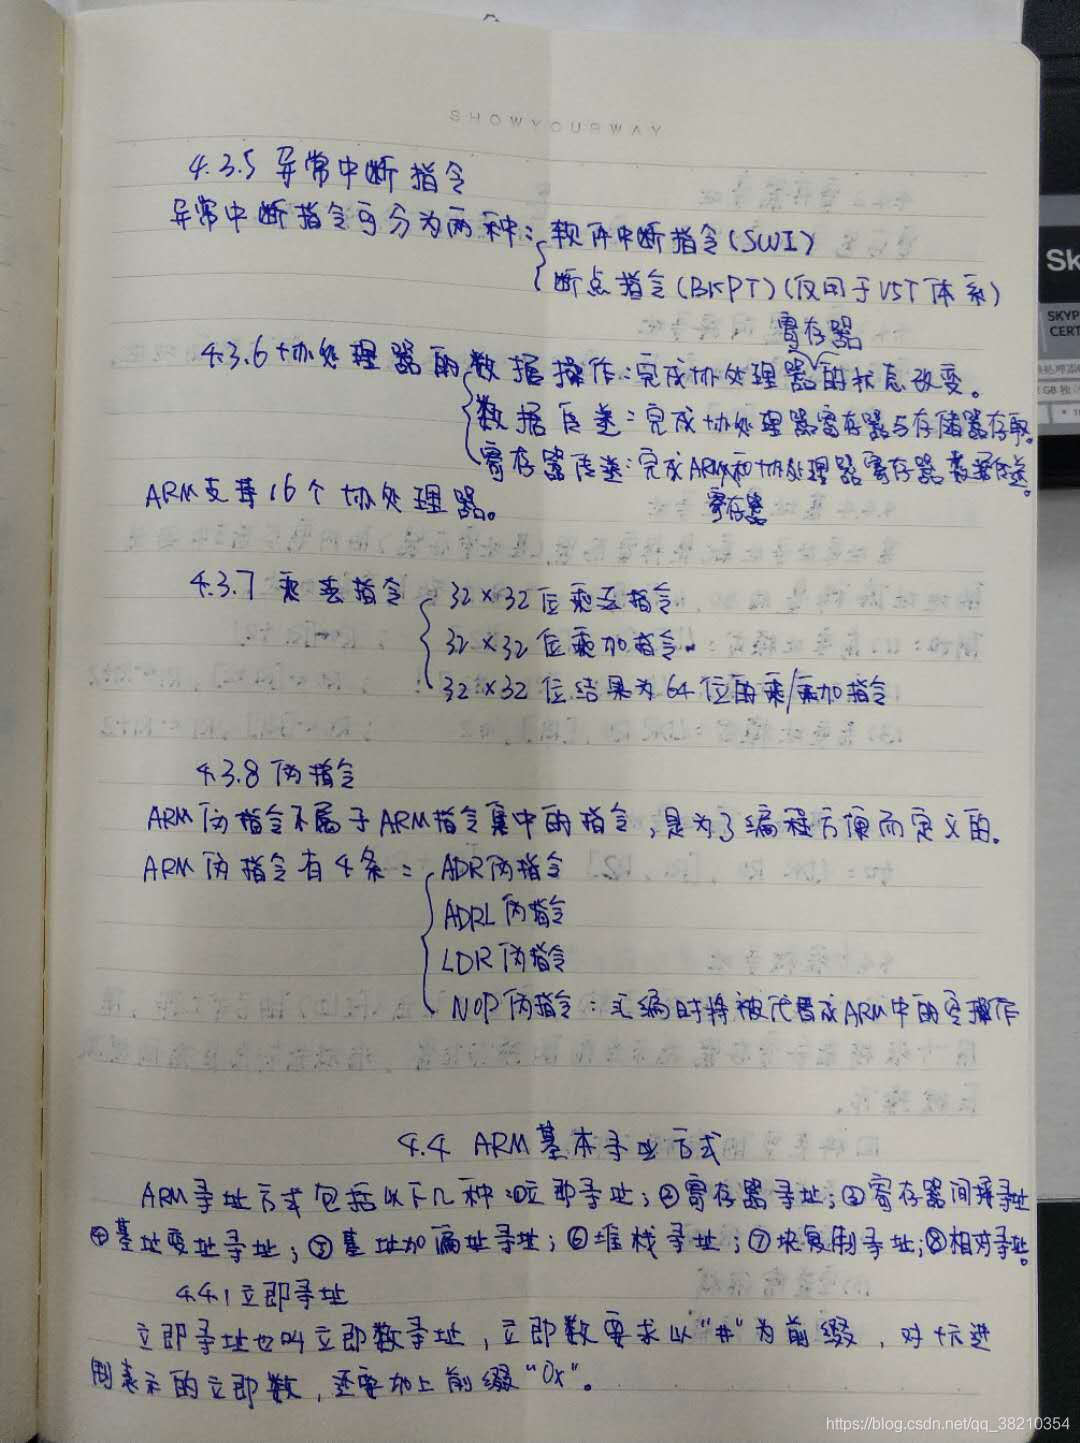 SHOWYOURWAY
4.3.5 异常中断指令
异常中断指令可分为两种：软件中断指令(SWI)
断点指令(BKPT)(仅用于V5T体系)
寄存器
4.3.6 协处理器的数据操作：完成协处理器的状态改变。
数据传送：完成协处理器寄存器与存储器存取。
寄存器传送：完成ARM和协处理器寄存器数据传送。
ARM支持16个协处理器。
寄存器
4.3.7 乘法指令 32×32位乘法指令
32×32位乘加指令
32×32位结果为64位的乘/乘加指令
4.3.8 伪指令
ARM伪指令不属于ARM指令集中的指令，是为了编程方便而定义的。
ARM伪指令有4条：ADR伪指令
ADRL伪指令
LDR伪指令
NOP伪指令：汇编时将被代替成ARM中的空操作
4.4 ARM基本寻址方式
ARM寻址方式包括以下几种：①立即寻址；②寄存器寻址；③寄存器间接寻址
④基址变址寻址；⑤基址加偏址寻址；⑥堆栈寻址；⑦块复制寻址；⑧相对寻址。
4.4.1 立即寻址
立即寻址也叫立即数寻址，立即数要求以"#"为前缀，对十六进
制表示的立即数，还要加上前缀"0x"。
Sk
SKYP
CERT
https://blog.csdn.net/qq_38210354